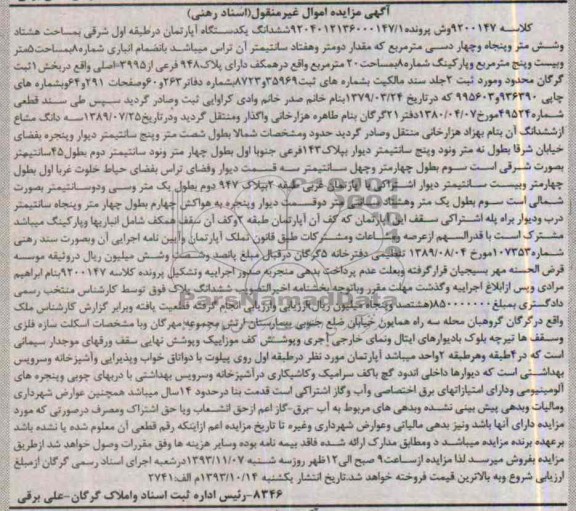 آگهی مزایده اموال غیرمنقول(اسناد رهنی)
کلاسه ۹۲۰۰۱۴۷وش پرونده۹۲۰۴۰۱۲۱۳۶۰۰۰۱۴۷/۱ششدانگ یکدستگاه آپارتمان درطبقه اول شرقی بمساحت هشتاد
وشش متر وپنجاه وچهار دسی مترمربع که مقدار دومتر وهفتاد سانتیمتر آن تراس میباشد بانضمام انباری شماره۸بمساحت۵متر
وبیست وپنج مترمربع وپارکینگ شماره۸بمساحت۲۰ مترمربع واقع درهمکف دارای پلاک۹۴۸ فرعی از۲۹۹۵-اصلی واقع دربخش۱ثبت
گرگان محدود ومورد ثبت ۲جلد سند مالکیت بشماره های ثبت۳۵۹۶۹و۸۷۲۳بشماره دفاتر۲۶۳و۶۰وصفحات ۲۹۱و۶۴وبشماره های
چاپی ۹۳۶۳۹۰و۹۹۵۶۰۳ که درتاریخ ۱۳۷۹/۰۳/۲۴بنام خانم صدر خانم وادی کراوایی ثبت وصادر گردید سپس طی سند قطعی
شماره۴۹۵۲۴مورخ۱۳۸۰/۰۴/۰۷دفتر۲۱گرگان بنام طاهره هزارخانی واگذار ومنتقل گردید ودرتاریخ۱۳۸۹/۰۷/۲۵سه دانگ مشاع
ازششدانگ آن بنام بهزاد هزارخانی منتقل وصادر گردید حدود ومشخصات شمالا بطول شصت متر وپنج سانتیمتر دیوار وپنجره بفضای
خیابان شرقا بطول نه متر ونود وپنج سانتیمتر دیوار بپلاک۱۴۳فرعی جنوبا اول بطول چهار متر ونود سانتیمتر دوم بطول۴۵سانتیمتر
بصورت شرقی است سوم بطول چهارمتر وچهل سانتیمتر سه قسمت دیوار وفضای تراس بفضای حیاط خلوت غربا اول بطول
چهارمتر وبیست سانتیمتر دیوار اشتراکی با آپارتمان غربی طبقه ۲بپلاک ۹۴۷ دوم بطول یک متر وسی ودوسانتیمتر بصورت
شمالی است سوم بطول یک متر وهفتاد سانتیمتر دوقسمت دیوار وپنجره به هواکش چهارم بطول چهار متر وپنجاه سانتیمتر
درب ودیوار براه پله اشتراکی سقف این آپارتمان که کف آن آپارتمان طبقه ۲وکف آن سقف همکف شامل انباریها وپارکینگ میباشد
مشترک است با قدرالسهم ازعرصه ومشاعات ومشترکات طبق قانون تملک آپارتمان وآیین نامه اجرایی آن وبصورت سند رهنی
شماره۱۰۷۳۵۳مورخ ۱۳۸۹/۰۸/۰۴ تنظیمی دفترخانه ۵گرگان درقبال مبلغ پانصد وشصت وشش میلیون ریال دروثیقه موسسه
قرض الحسنه مهر بسیجیان قرارگرفته وبعلت عدم پرداخت بدهی منجربه صدور اجراییه وتشکیل پرونده کلاسه ۹۲۰۰۱۴۷بنام ابراهیم
مرادی وپس ازابلاغ اجراییه وگذشت مهلت مقرر وباتوجه بخشنامه اخیرالتصویب ششدانگ پلاک فوق توسط کارشناس منتخب رسمی
دادگستری بمبلغ۸۵۰۰۰۰۰۰۰(هشتصد وپنجاه میلیون ریال)ارزیابی وارزیابی انجام گرفته قطعیت یافته وبرابر گزارش کارشناس ملک
واقع درگرگان گروهبان محله سه راه همایون خیابان ضلع جنوبی بیمارستان ارتش مجموعه مهرگان وبا مشخصات اسکلت سازه فلزی
وسقف ها تیرچه بلوک بادیوارهای ایتال ونمای خارجی آجری وپوشش کف موزاییک وپوشش نهایی سقف ورقهای موجدار سیمانی
است که در۴طبقه وهرطبقه ۲واحد میباشد آپارتمان مورد نظر درطبقه اول روی پیلوت با دواتاق خواب وپذیرایی وآشپزخانه وسرویس
بهداشتی است که دیوارها داخلی اندود گچ باکف سرامیک وکاشیکاری درآشپزخانه وسرویس بهداشتی با دربهای چوبی وپنجره های
آلومینیومی ودارای امتیازاتهای برق اختصاصی وآب وگاز اشتراکی است قدمت بنا درحدود ۱۴سال میباشد همچنین عوارض شهرداری
ومالیات وبدهی پیش بینی نشده وبدهی های مربوط به آب -برق-گاز اعم ازحق انشعاب ویا حق اشتراک ومصرف درصورتی که مورد
مزایده دارای آنها باشد ونیز بدهی مالیاتی وعوارض شهرداری وغیره تا تاریخ مزایده اعم ازاینکه رقم قطعی آن معلوم شده یا نشده باشد
برعهده برنده مزایده میباشد و دمطابق مدارک ارائه شده فاقد بیمه نامه بوده وسایر هزینه ها وفق مقررات وصول خواهد شد ازطریق
مزایده بفروش میرسد لذا مزایده ازساعت۹ صبح الی۱۲ظهر روزسه شنبه ۱۳۹۳/۱۱/۰۷درشعبه اجرای اسناد رسمی گرگان ازمبلغ
ارزیابی شروع وبه بالاترین قیمت فروخته خواهد شد.تاریخ انتشار یکشنبه ۱۳۹۳/۱۰/۱۴م الف:۲۷۴۱
۸۳۴۶-رئیس اداره ثبت اسناد واملاک گرگان-علی برقی
ParsNamadData